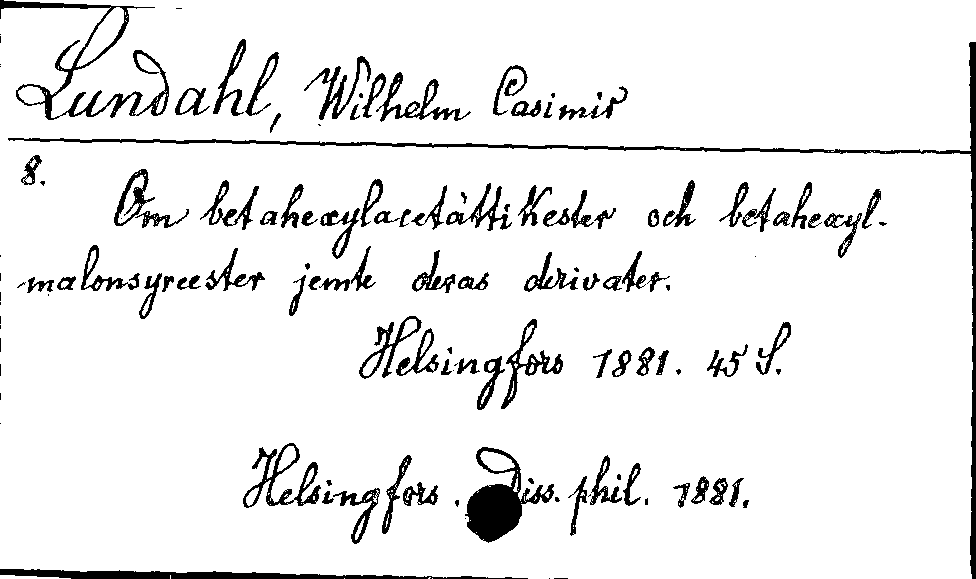 Lundahl, Wilhelm Casimir
8.
Om betahexylacetättikester och betahexyl-
malonsyreester jemte deras derivater.
Helsingfors 1881. 45 S.
Helsingfors. Diss. phil. 1881.